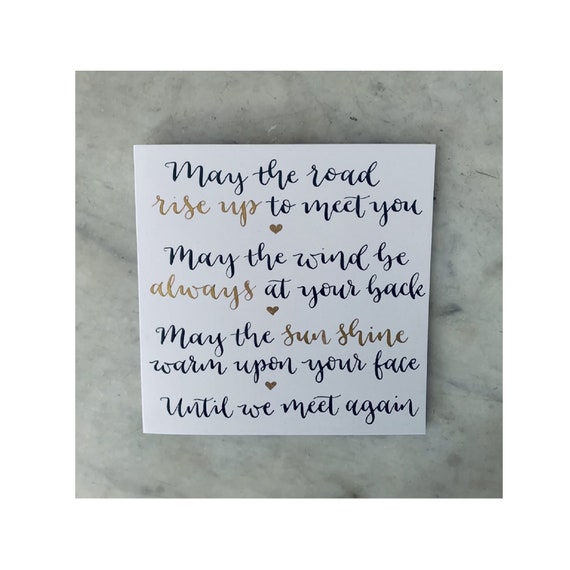 May the road
rise up to meet you
May the wind be
always at your back
May the sun shine
warm upon your face
Until we meet again